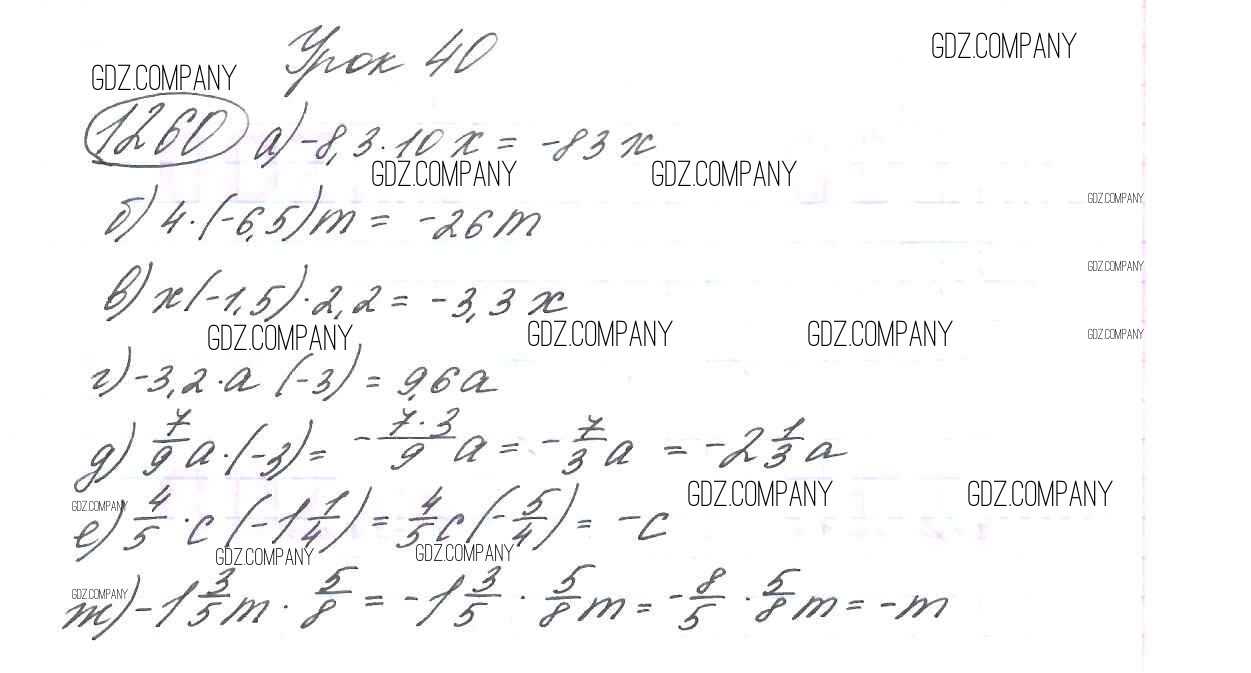 Урок 40
GDZ.COMPANY
GDZ.COMPANY
1260 а) -8,3·10x = -83x
GDZ.COMPANY GDZ.COMPANY
GDZ.COMPANY
б) 4·(-6,5)m = -26m
GDZ.COMPANY
в) x(-1,5)·2,2 = -3,3x
GDZ.COMPANY GDZ.COMPANY GDZ.COMPANY GDZ.COMPANY
г) -3,2·a (-3) = 9,6a
д) 7/9 a·(-3) = -7·3/9 a = -7/3 a = -2 1/3 a
GDZ.COMPANY GDZ.COMPANY GDZ.COMPANY
е) 4/5 ·c (-1 1/4) = 4/5 c (-5/4) = -c
GDZ.COMPANY GDZ.COMPANY
GDZ.COMPANY
ж) -1 3/5 m · 5/8 = -1 3/5 · 5/8 m = -8/5 · 5/8 m = -m